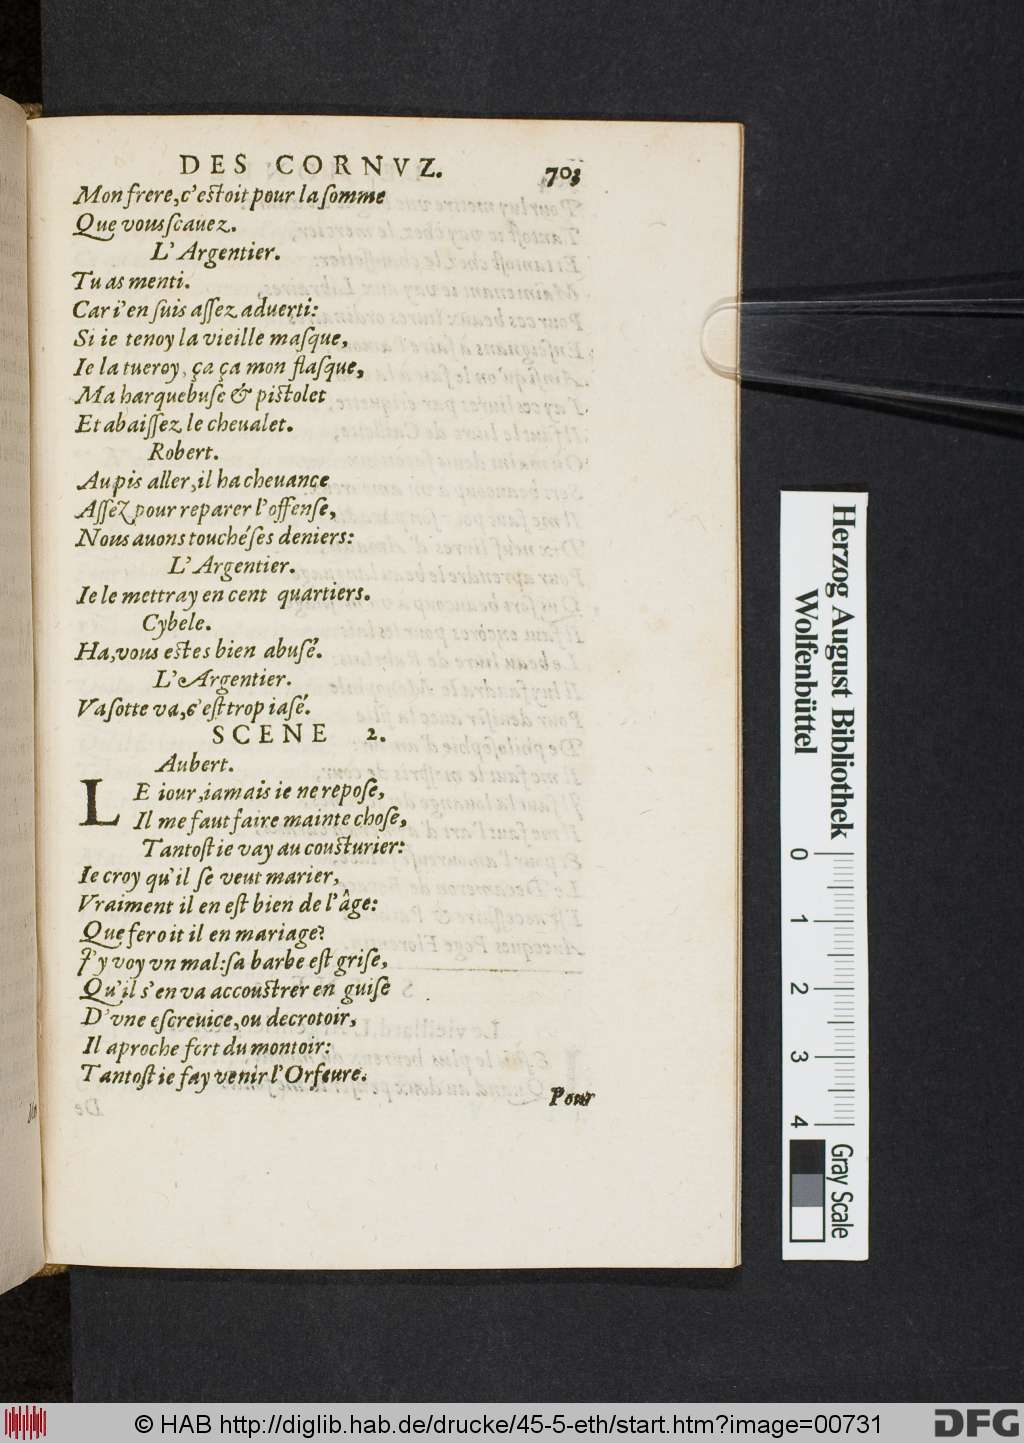 DES CORNVZ. 703
Mon frere, c'estoit pour la somme
Que vous scauez.
L'Argentier.
Tu as menti.
Car i'en suis assez aduerti:
Si ie tenoy la vieille masque,
Ie la tueroy, ça ça mon flasque,
Ma harquebuse & pistolet
Et abaissez le cheualet.
Robert.
Au pis aller, il ha cheuance
Assez pour reparer l'offense,
Nous auons touché ses deniers:
L'Argentier.
Ie le mettray en cent quartiers.
Cybele.
Ha, vous estes bien abusé.
L'Argentier.
Va sotte va, c'est trop iasé.
SCENE 2.
Aubert.
LE iour, iamais ie ne repose,
Il me faut faire mainte chose,
Tantost ie vay au cousturier:
Ie croy qu'il se veut marier,
Vraiment il en est bien de l'âge:
Que feroit il en mariage?
I'y voy vn mal: sa barbe est grise,
Qu'il s'en va accoustrer en guise
D'vne escreuice, ou decrotoir,
Il aproche fort du montoir:
Tantost ie fay venir l'Orfeure.
Pour
Herzog August Bibliothek
Wolfenbüttel
0 1 2 3 4
Gray Scale
© HAB http://diglib.hab.de/drucke/45-5-eth/start.htm?image=00731
DFG